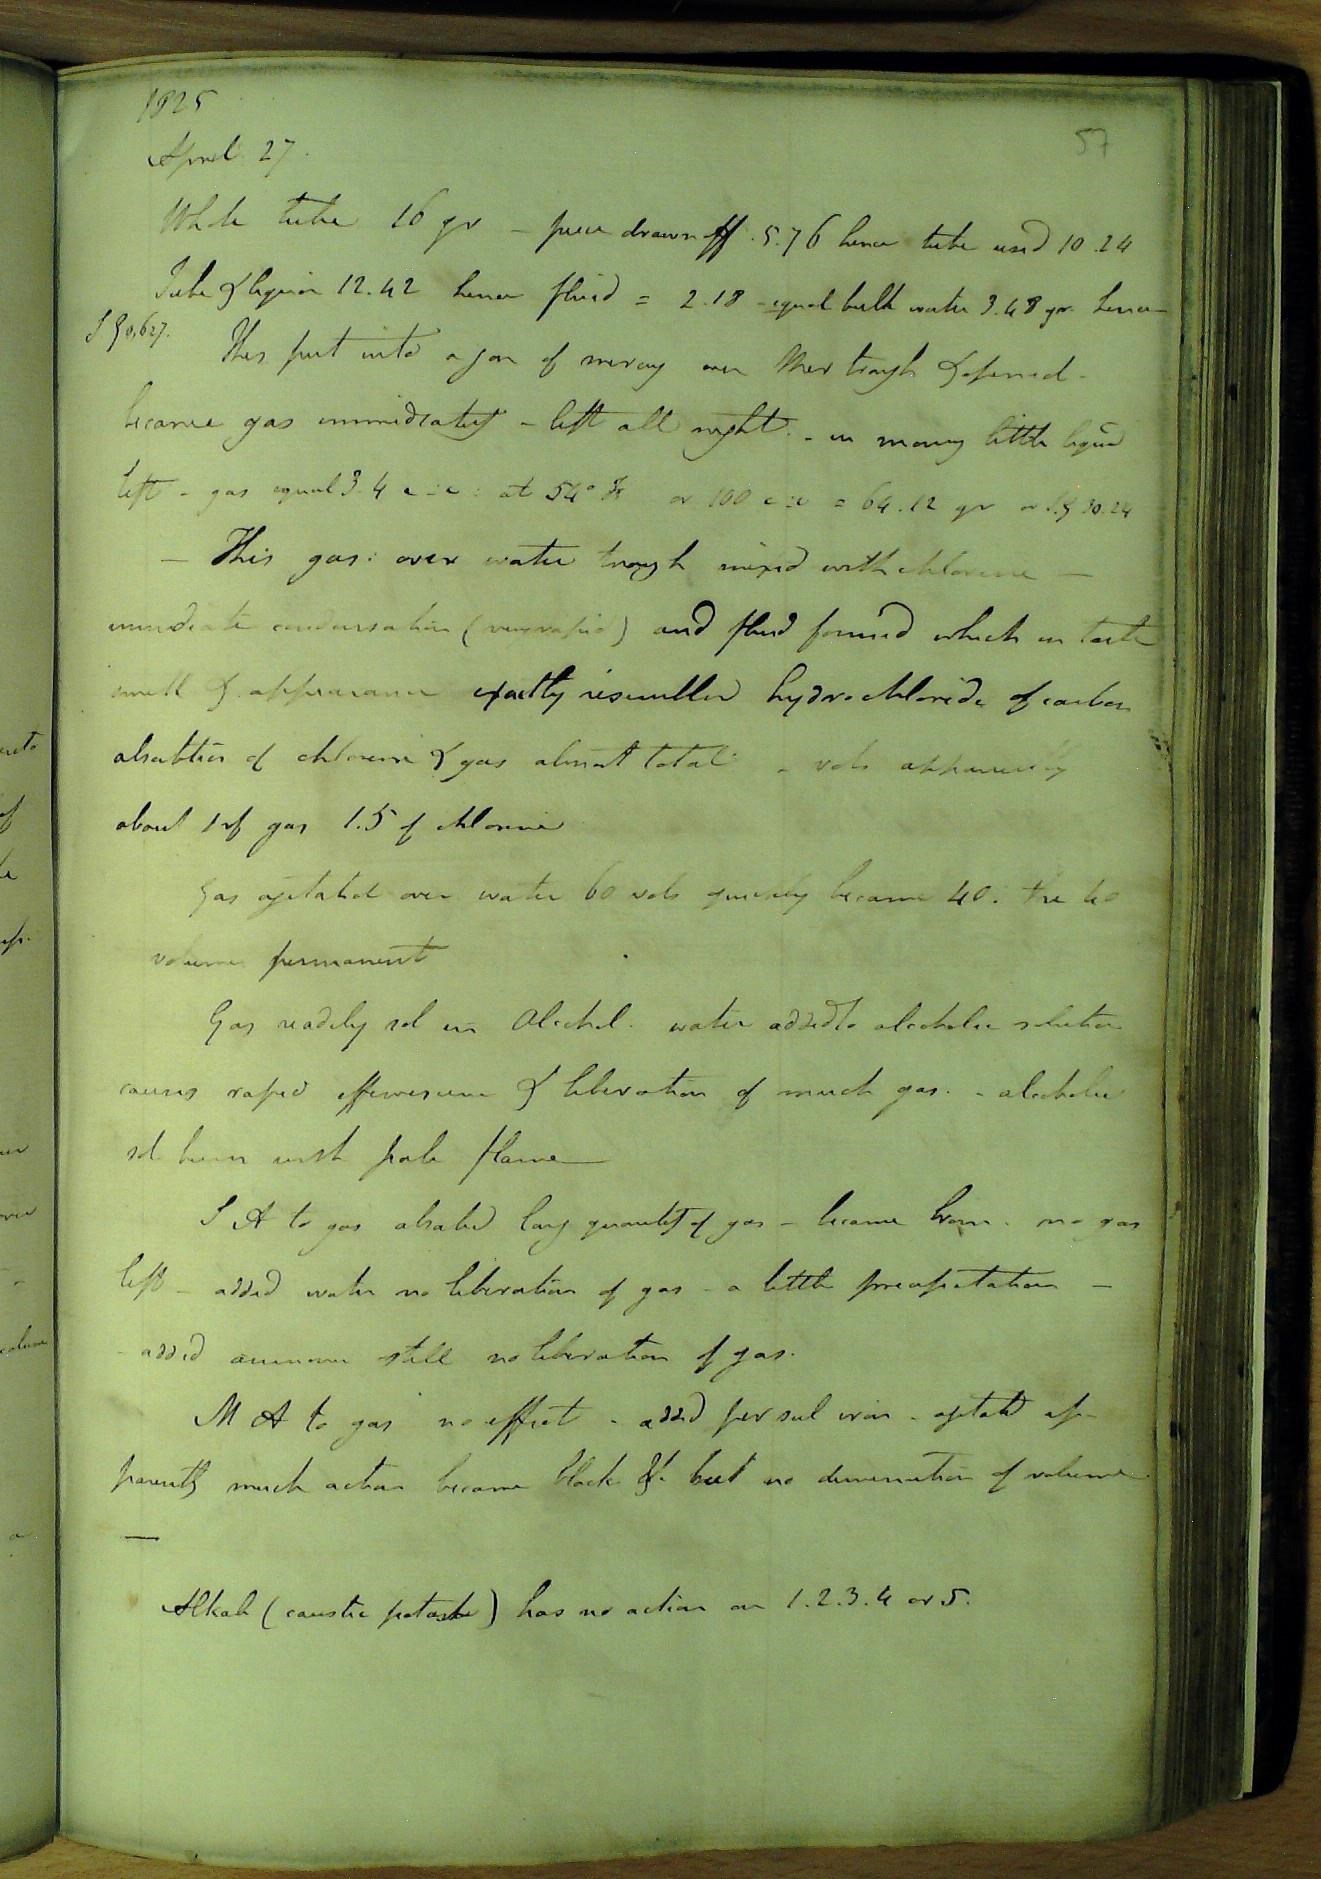 1825
57
April 27.
Whole tube 16 gr - piece drawn off 5.76 hence tube used 10.24
Tube & liquor 12.42 hence fluid = 2.18 - equal bulk water 3.48 gr. hence
S G 0,627.
This put into a jar of mercury over Mer trough & opened -
became gas immediately - left all night - in morning little liquid
left - gas equal 3.4 c : c : at 54° F or 100 c : c = 64.12 gr or S.G 30.24
- This gas : over water trough mixed with chlorine -
immediate condensation (very rapid) and fluid formed which in taste
smell & appearance exactly resembled hydrochloride of carbon
absorbtion of chlorine & gas almost total - vols apparently
about 1 of gas 1.5 of chlorine
Gas agitated over water 60 vols quickly became 40. the 40
volumes permanent
Gas readily sol in Alcohol. water added to alcoholic solution
causes rapid effervescence & liberation of much gas. - alcoholic
sol burns with pale flame
S A to gas absorbed large quantity of gas - became brown. no gas
left - added water no liberation of gas - a little precipitation -
- added ammonia still no liberation of gas.
M A to gas no effect - added per sul iron - agitated ap-
parently much action became black &c but no diminution of volume
—
Alkali (caustic potash) has no action on 1.2.3.4 or 5.